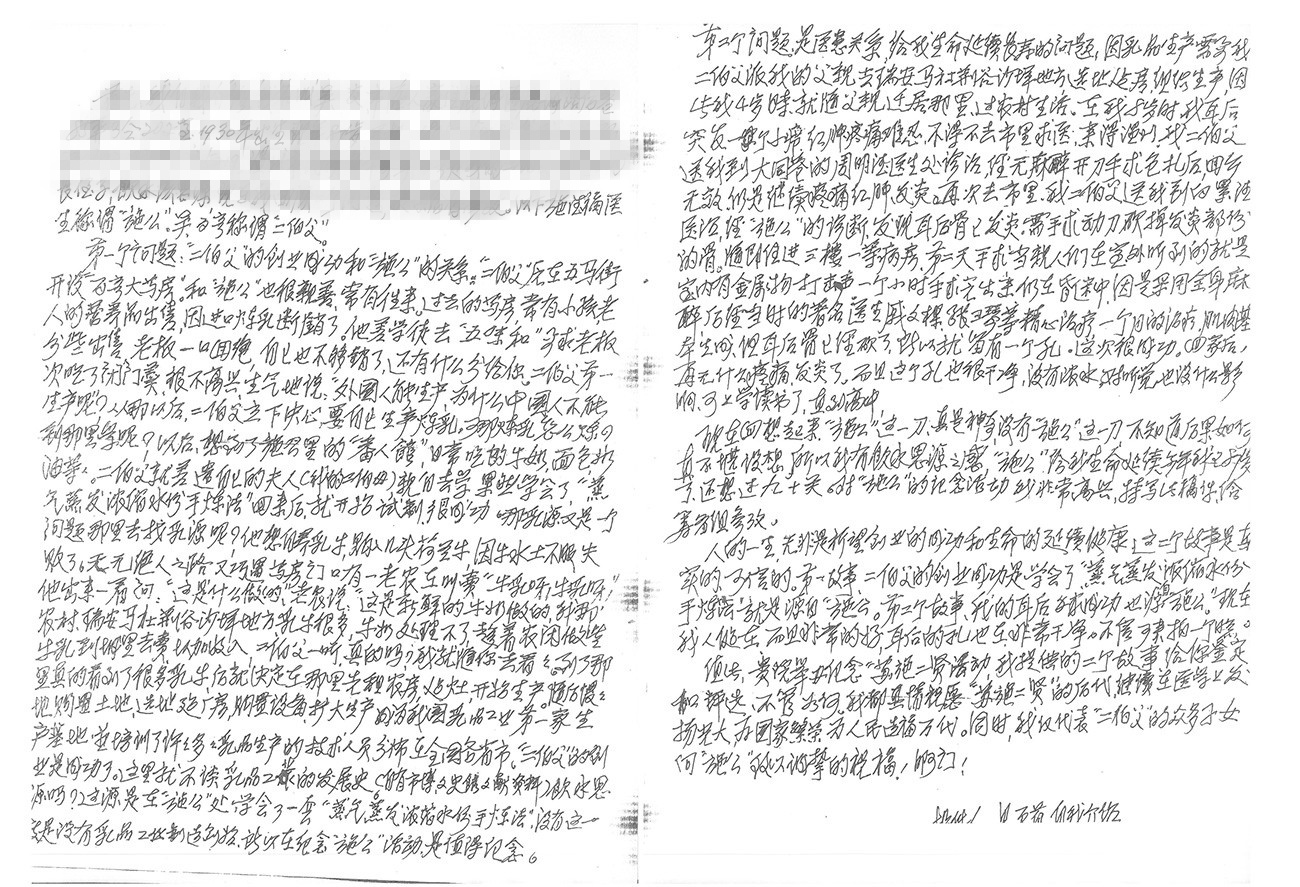 生称谓"施公"。吴百亨称谓"二伯父"。
第一个问题:"二伯父"的创业成功和"施公"的关系。"二伯父"先在五马街
开设"百亨大药房"。和"施公"也很亲善,常有往来。过去的药房常有小孩、老
人的营养品出售,因进口炼乳断销了。他差学徒去"五味和"求老板
分些出售,老板一口回绝,自己也不够销了,还有什么分给你。二伯父第一
次吃了闭门羹,很不高兴,生气地说:"外国人能生产,为什么中国人不能
生产呢?"从那以后,二伯父立下决心,要自己生产炼乳。那炼乳怎么炼?
到那里学呢?以后,想到了施公里的"番人馆",日常吃的牛奶、面包、奶
油等。二伯父就差遣自己的夫人(我的二伯母)亲自去学,果然学会了"蒸
气蒸发浓缩水份手炼法"回来后,就开始试制,很成功。哪乳源又是一个
问题,那里去找乳源呢?他想自养乳牛,购入几头荷兰牛,因牛水土不服失
败了。天无绝人之路,又巧遇药房门口有一老农在叫卖"牛乳呀,牛乳呀!"
他出来一看问:"这是什么做的"老农说:"这是新鲜的牛奶做的,我那
农村,瑞安马屿荆谷沙垟地方乳牛很多,牛奶处理不了,趁着农闲做些
牛乳到城里去卖,增加收入,二伯父一听,真的吗?我就随你去看看。到了那
里真的看到了很多乳牛后,就决定在那里先租农房,起灶,开始生产。随后慢慢
地购置土地,选地建厂房,购置设备扩大生产,成为我国乳品工业第一家生
产基地,并培训了许多乳品生产的技术人员分布在全国各省市。"二伯父"的创
业是成功了。这里就不谈乳品工业的发展史。(省市博文史馆文献资料)饮水思
源吗?这源是在"施公"处学会了一套"蒸气蒸发浓缩水份手炼法",没有这一
是没有乳品工业制造创始,所以在纪念"施公"活动是值得纪念。
第二个问题,是医患关系,给我生命延续长寿的问题,因乳品生产需要我
二伯父派我的父亲去瑞安马屿荆谷沙垟地方,选地建房,组织生产,因
此我4岁时就随父亲迁居那里,过农村生活。在我小岁时,我耳后
突发一个小常红肿疼痛难忍,不得不去市里求医,来得温州,我二伯父
送我到大同巷的周明法医生处诊治,经无麻醉开刀手术包扎后回乡
无效,仍是继续疼痛红肿,发炎。再次去市里,我二伯父送我到白累德
医治,经"施公"的诊断,发现耳后骨已发炎需手术动刀砍掉发炎部份
的骨。随即住进三楼一等病房,第二天手术,当亲人们在室外听到的就是
室内有金属物打击声,一个小时手术完出来,仍在昏迷中,因是采用全身麻
醉,后经当时的著名医生戚文樑、张瑟琴等精心治疗,一个月的治疗,肌肉基
本生回,但耳后骨已经砍了,所以就留有一个孔。这次很成功。回家后,
再无什么疼痛、发炎了。而且这个孔也很干净,没有浓水,对听觉也没什么影
响,可上学读书了,直到高中。
现在回想起来,"施公"这一刀,真是神刀,没有"施公"这一刀,不知有后果如何
真不堪设想,所以我有饮水思源之寓,"施公"给我生命延续
了,还想过九十关。对"施公"的纪念活动,我非常高兴,特写此稿件,给
筹委组参改。
人的一生,无非是祈望创业的成功和生命的延续健康,这二个故事是真
实的,可信的。第一故事,二伯父的创业成功是学会了"蒸气蒸发浓缩水份
手炼法"就是源自"施公"。第二个故事,我的耳后手术成功也源"施公"。现在
我人健在,而且非常的好,耳后的孔也在,非常干净。不信可来拍一个照。
值此,贵院举办纪念"苏施二贤"活动,我提供的二个故事给你鉴定
和评选,不管如何,我都真情祝愿"苏施二贤"的后代,继续在医学上发
扬光大,为国家繁荣为人民造福万代。同时,我仅代表"二伯父"的众多子女
向"施公"致以诚挚的祝福!